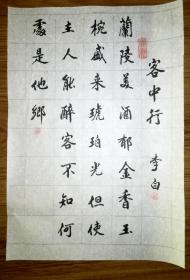 客中行 李白
蘭陵美酒郁金香玉
椀盛来琥珀光但使
主人能醉客不知何
處是他鄉